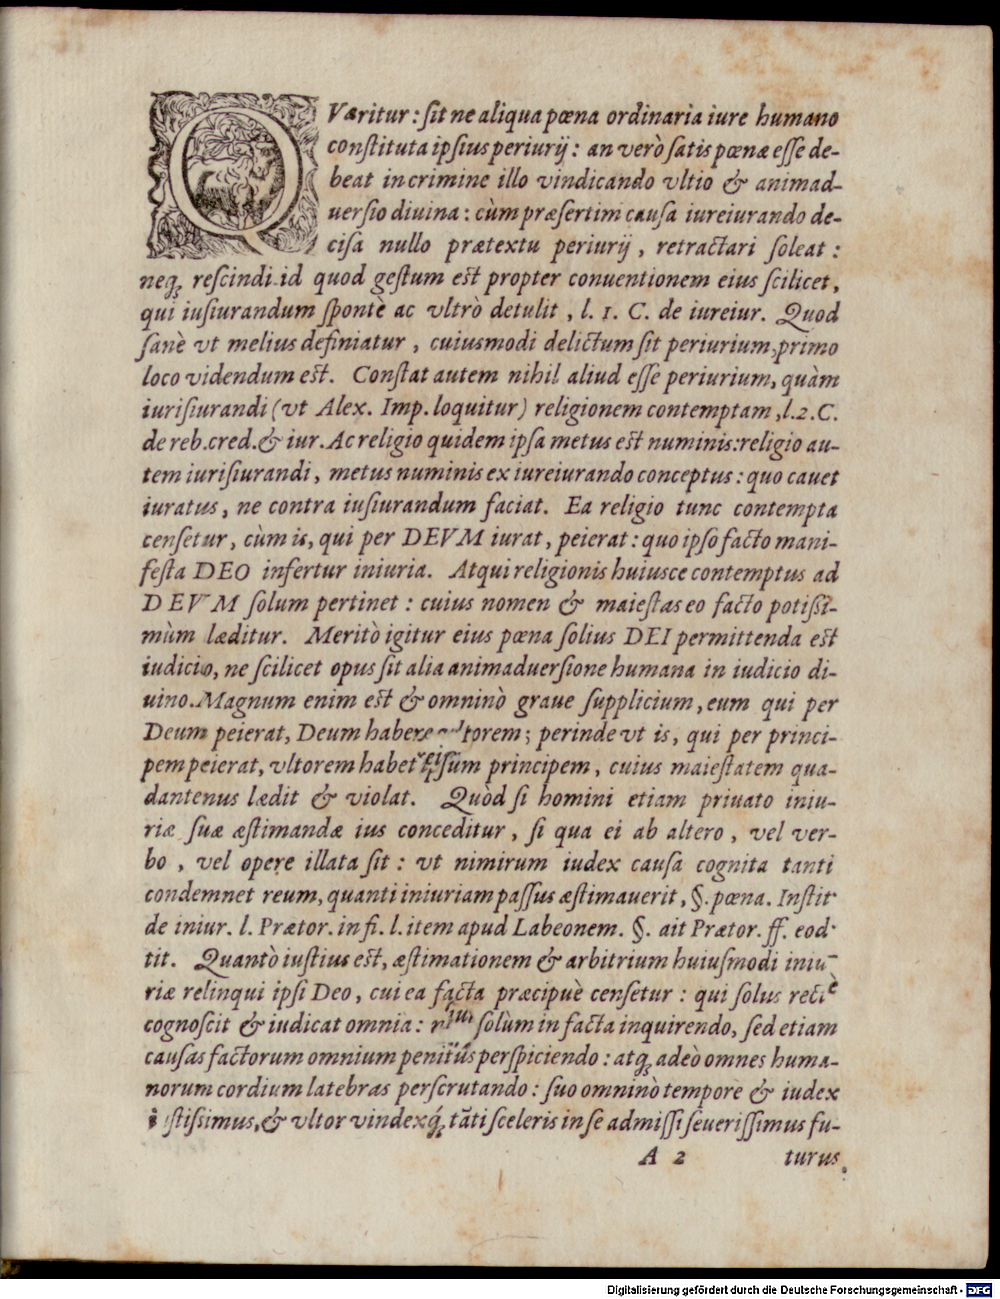 QVæritur : sit ne aliqua pœna ordinaria iure humano
constituta ipsius periurij : an verò satis pœnæ esse de-
beat in crimine illo vindicando vltio & animad-
uersio diuina : cùm præsertim causa iureiurando de-
cisa nullo prætextu periurij , retractari soleat :
neq; rescindi id quod gestum est propter conuentionem eius scilicet,
qui iusiurandum spontè ac vltrò detulit , l. 1. C. de iureiur. Quod
sanè vt melius definiatur , cuiusmodi delictum sit periurium, primo
loco videndum est. Constat autem nihil aliud esse periurium, quàm
iurisiurandi (vt Alex. Imp. loquitur) religionem contemptam , l. 2. C.
de reb. cred. & iur. Ac religio quidem ipsa metus est numinis: religio au-
tem iurisiurandi , metus numinis ex iureiurando conceptus : quo cauet
iuratus , ne contra iusiurandum faciat. Ea religio tunc contempta
censetur , cùm is, qui per DEVM iurat, peierat : quo ipso facto mani-
festa DEO infertur iniuria. Atqui religionis huiusce contemptus ad
DEVM solum pertinet : cuius nomen & maiestas eo facto potissi-
mùm læditur. Meritò igitur eius pœna solius DEI permittenda est
iudicio, ne scilicet opus sit alia animaduersione humana in iudicio di-
uino. Magnum enim est & omninò graue supplicium, eum qui per
Deum peierat, Deum habere vltorem ; perinde vt is, qui per princi-
pem peierat, vltorem habet ipsum principem, cuius maiestatem qua-
dantenus lædit & violat. Quòd si homini etiam priuato iniu-
riæ suæ æstimandæ ius conceditur , si qua ei ab altero , vel ver-
bo , vel opere illata sit : vt nimirum iudex causa cognita tanti
condemnet reum, quanti iniuriam passus æstimauerit, §. pœna. Instit.
de iniur. l. Prætor. in fi. l. item apud Labeonem. §. ait Prætor. ff. eod.
tit. Quantò iustius est, æstimationem & arbitrium huiusmodi iniu-
riæ relinqui ipsi Deo, cui ea facta præcipuè censetur : qui solus rectè
cognoscit & iudicat omnia : solùm in facta inquirendo, sed etiam
causas factorum omnium penitùs perspiciendo : atq; adeò omnes huma-
norum cordium latebras perscrutando : suo omninò tempore & iudex
iustissimus, & vltor vindexq́; tāti sceleris in se admissi seuerissimus fu-
A 2 turus
Digitalisierung gefördert durch die Deutsche Forschungsgemeinschaft - DFG